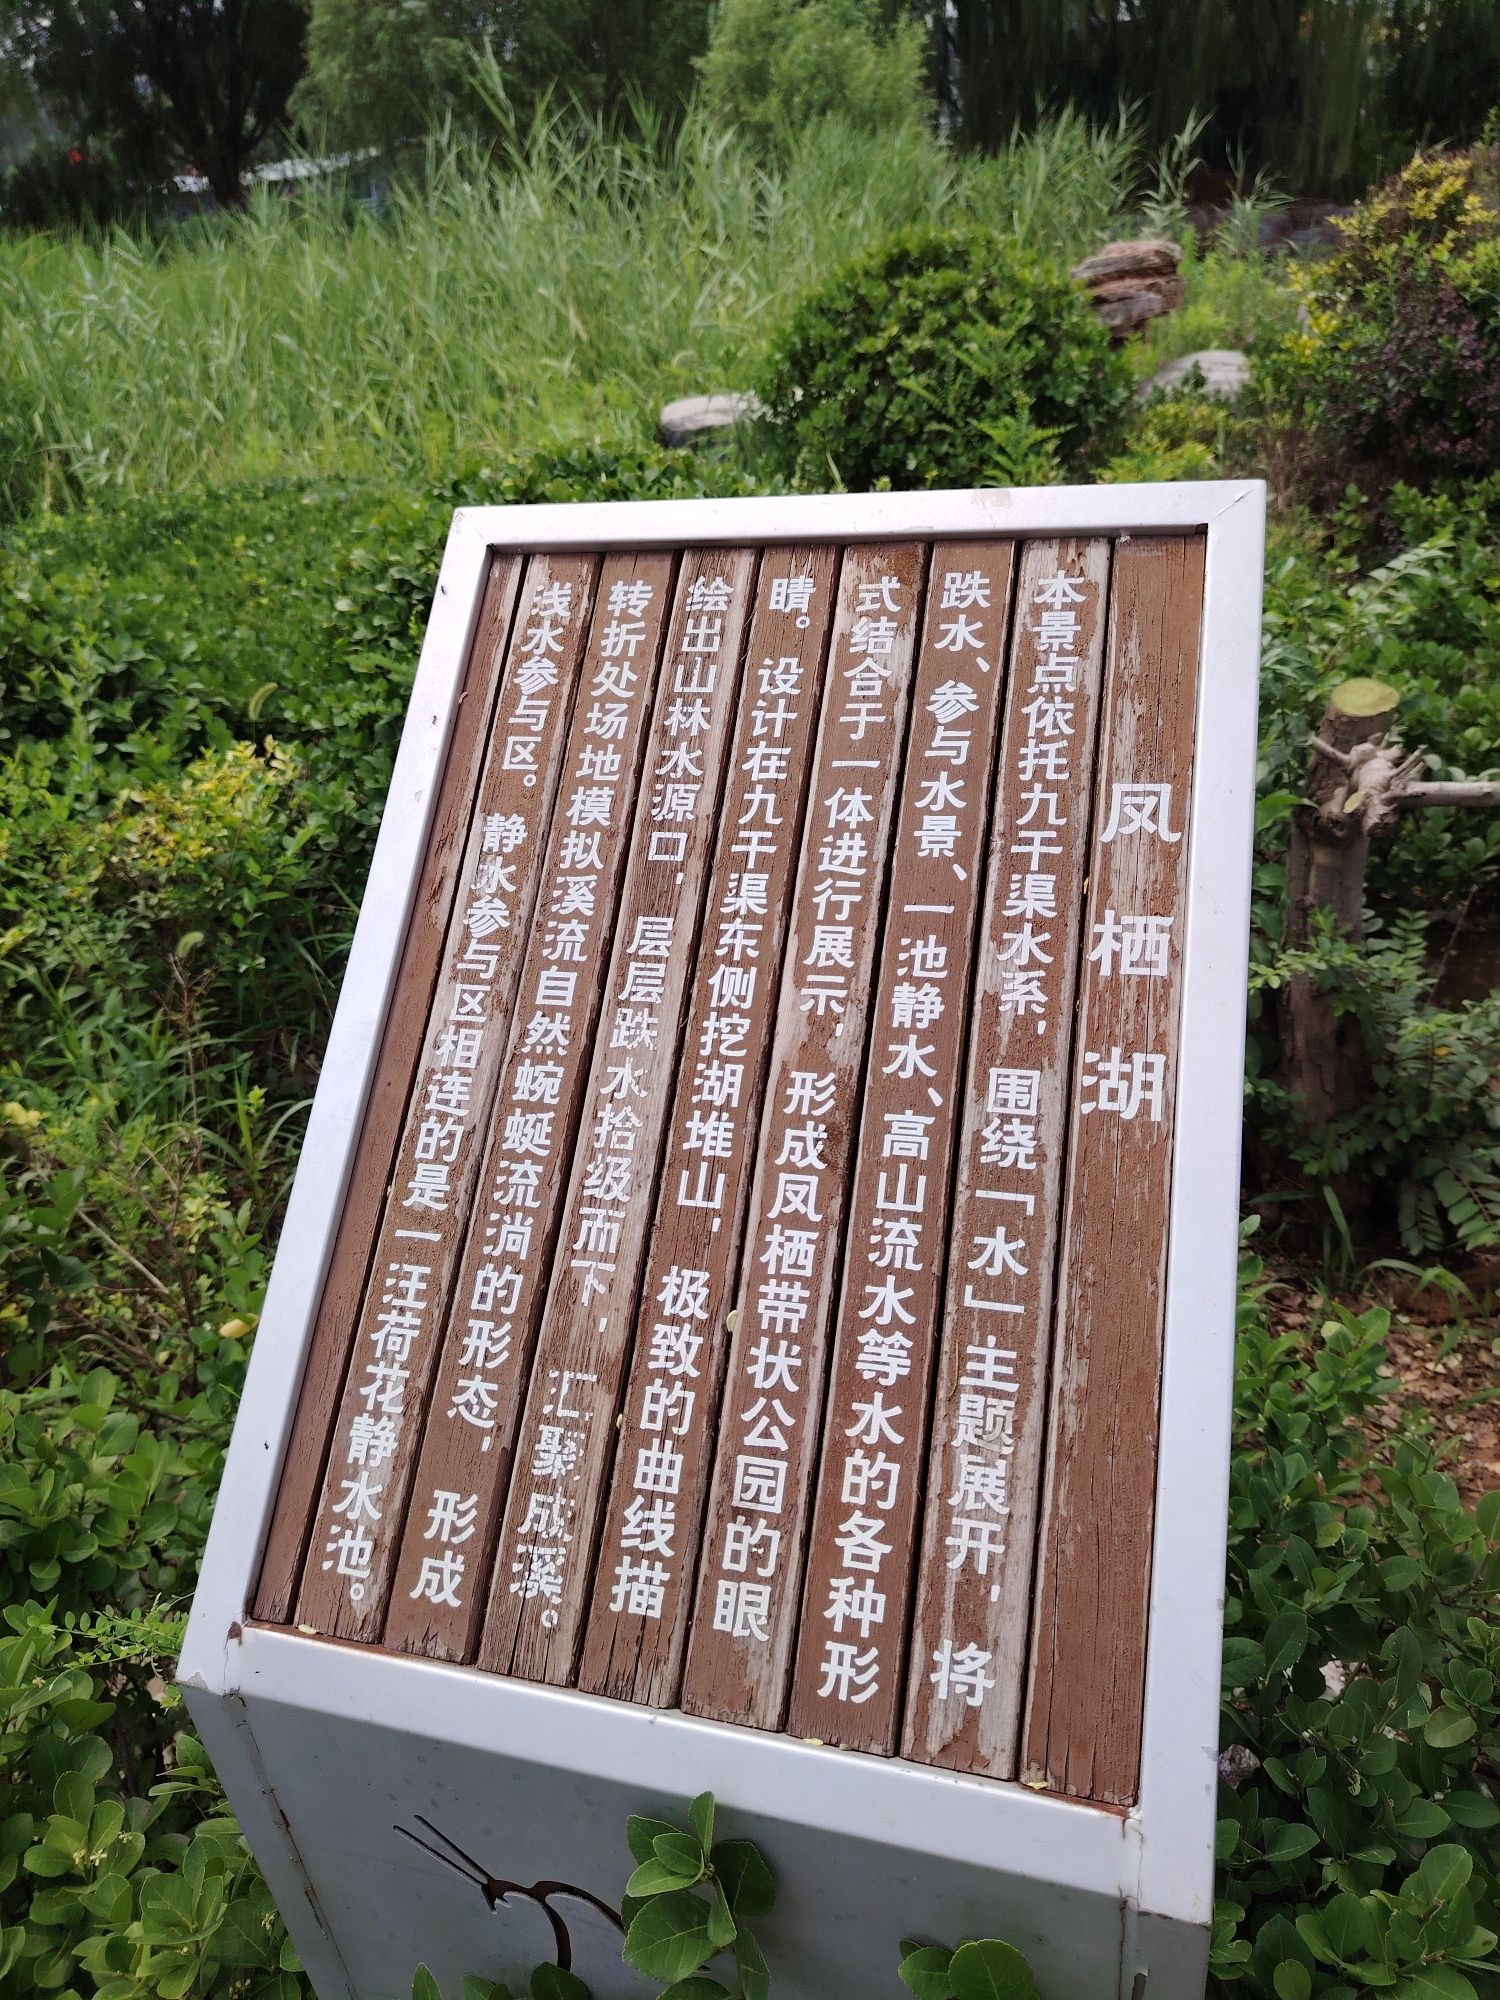 凤栖湖
本景点依托九干渠水系，围绕「水」主题展开，将
跌水、参与水景、一池静水、高山流水等水的各种形
式结合于一体进行展示，形成凤栖带状公园的眼
睛。设计在九干渠东侧挖湖堆山，极致的曲线描
绘出山林水源口，层层跌水拾级而下，汇聚成溪。
转折处场地模拟溪流自然蜿蜒流淌的形态，形成
浅水参与区。静水参与区相连的是一汪荷花静水池。